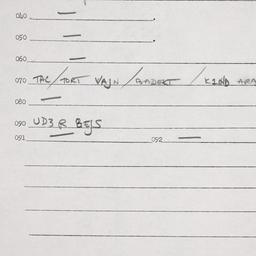 040 —
050 —
060 —
070 TAC/TORT VAJN / / KIND
080 —
090 UD3R BEJS
091 — 092 —